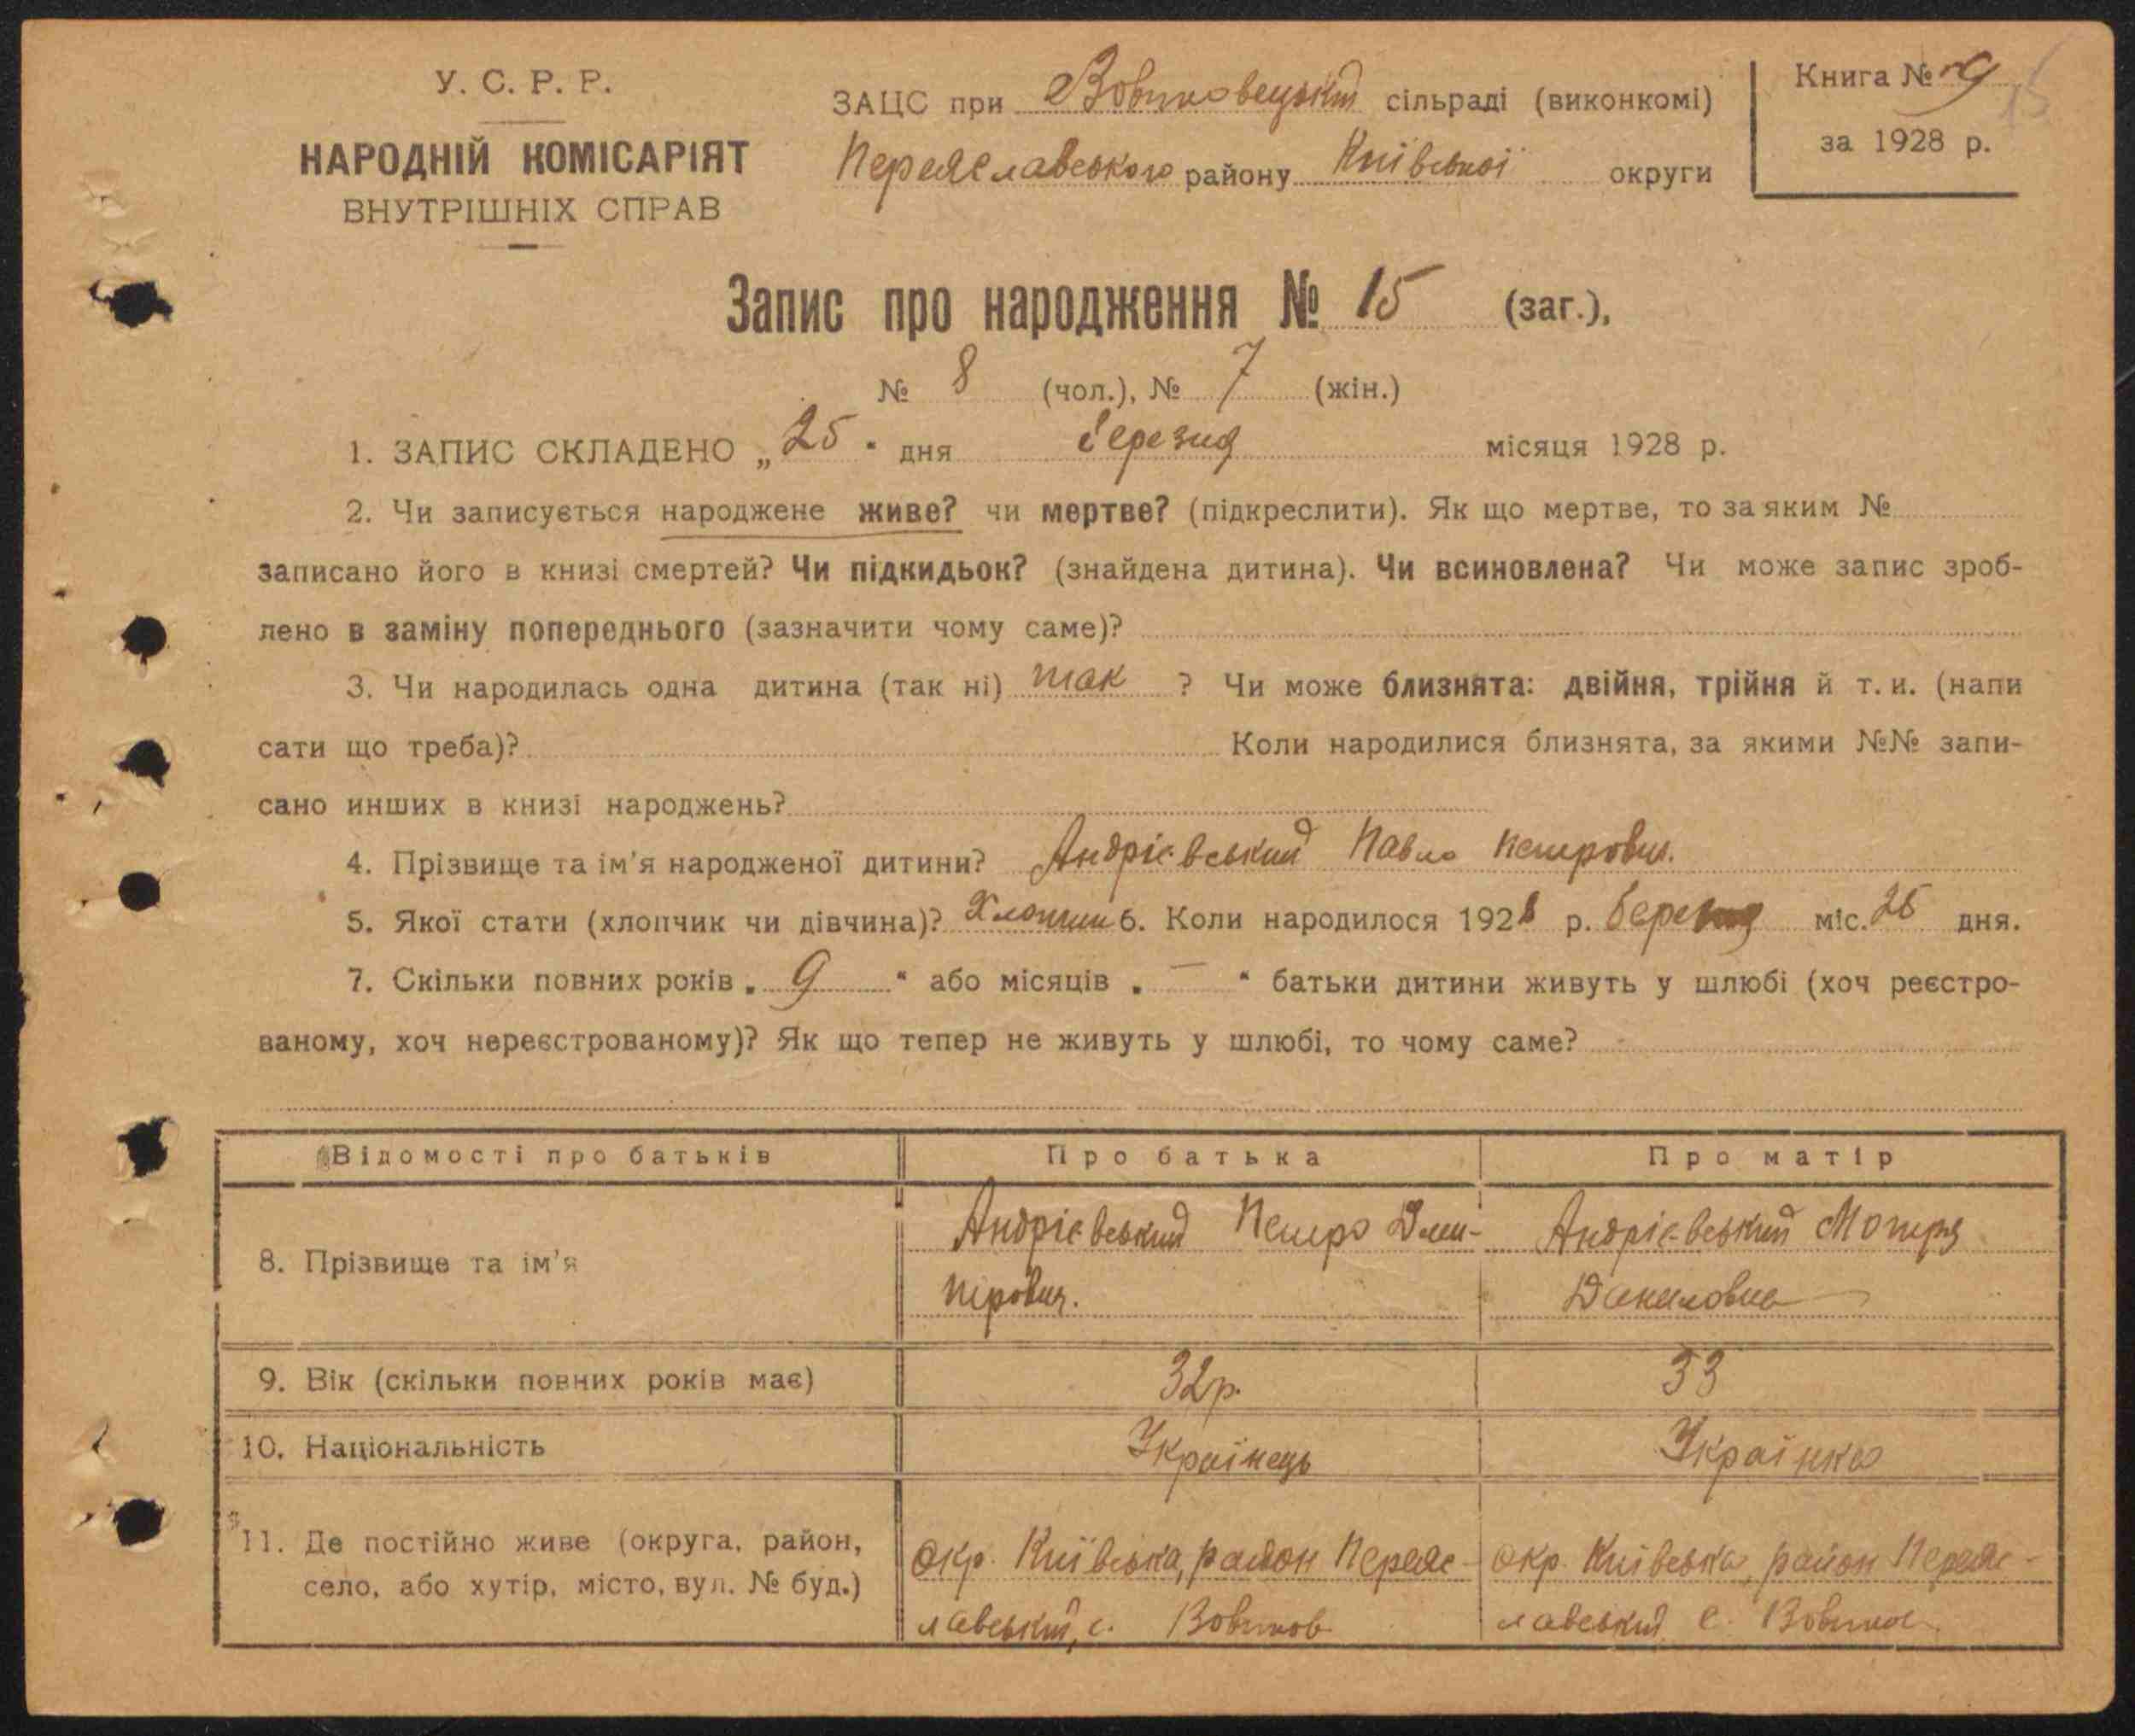 У. С. Р. Р.
НАРОДНІЙ КОМІСАРІЯТ
ВНУТРІШНІХ СПРАВ
ЗАЦС при сільраді (виконкомі)
Переяславського району Київської округи
Книга № 9
за 1928 р.
15
Запис про народження № 15 (заг.),
№ 8 (чол.), № 7 (жін.)
1. ЗАПИС СКЛАДЕНО „25" дня березня місяця 1928 р.
2. Чи записується народжене живе? чи мертве? (підкреслити). Як що мертве, то за яким №
записано його в книзі смертей? Чи підкидьок? (знайдена дитина). Чи всиновлена? Чи може запис зроб-
лено в заміну попереднього (зазначити чому саме)?
3. Чи народилась одна дитина (так ні) так ? Чи може близнята: двійня, трійня й т. и. (напи
сати що треба)? Коли народилися близнята, за якими №№ запи-
сано инших в книзі народжень?
4. Прізвище та ім'я народженої дитини? Андрієвський Павло Петрович.
5. Якої стати (хлопчик чи дівчина)? Хлопчик 6. Коли народилося 1928 р. березня міс. 25 дня.
7. Скільки повних років „ 9 " або місяців „ — " батьки дитини живуть у шлюбі (хоч реєстро-
ваному, хоч нереєстрованому)? Як що тепер не живуть у шлюбі, то чому саме?
Відомості про батьків Про батька Про матір
8. Прізвище та ім'я
Андрієвський Петро Дми-
трович.
Андрієвський Мотря
Даниловна
9. Вік (скільки повних років має) 32 р. 33
10. Національність Українець Українка
11. Де постійно живе (округа, район,
село, або хутір, місто, вул. № буд.)
окр. Київська, район Переяс-
лавський, с.
окр. Київська, район Переяс-
лавський с.